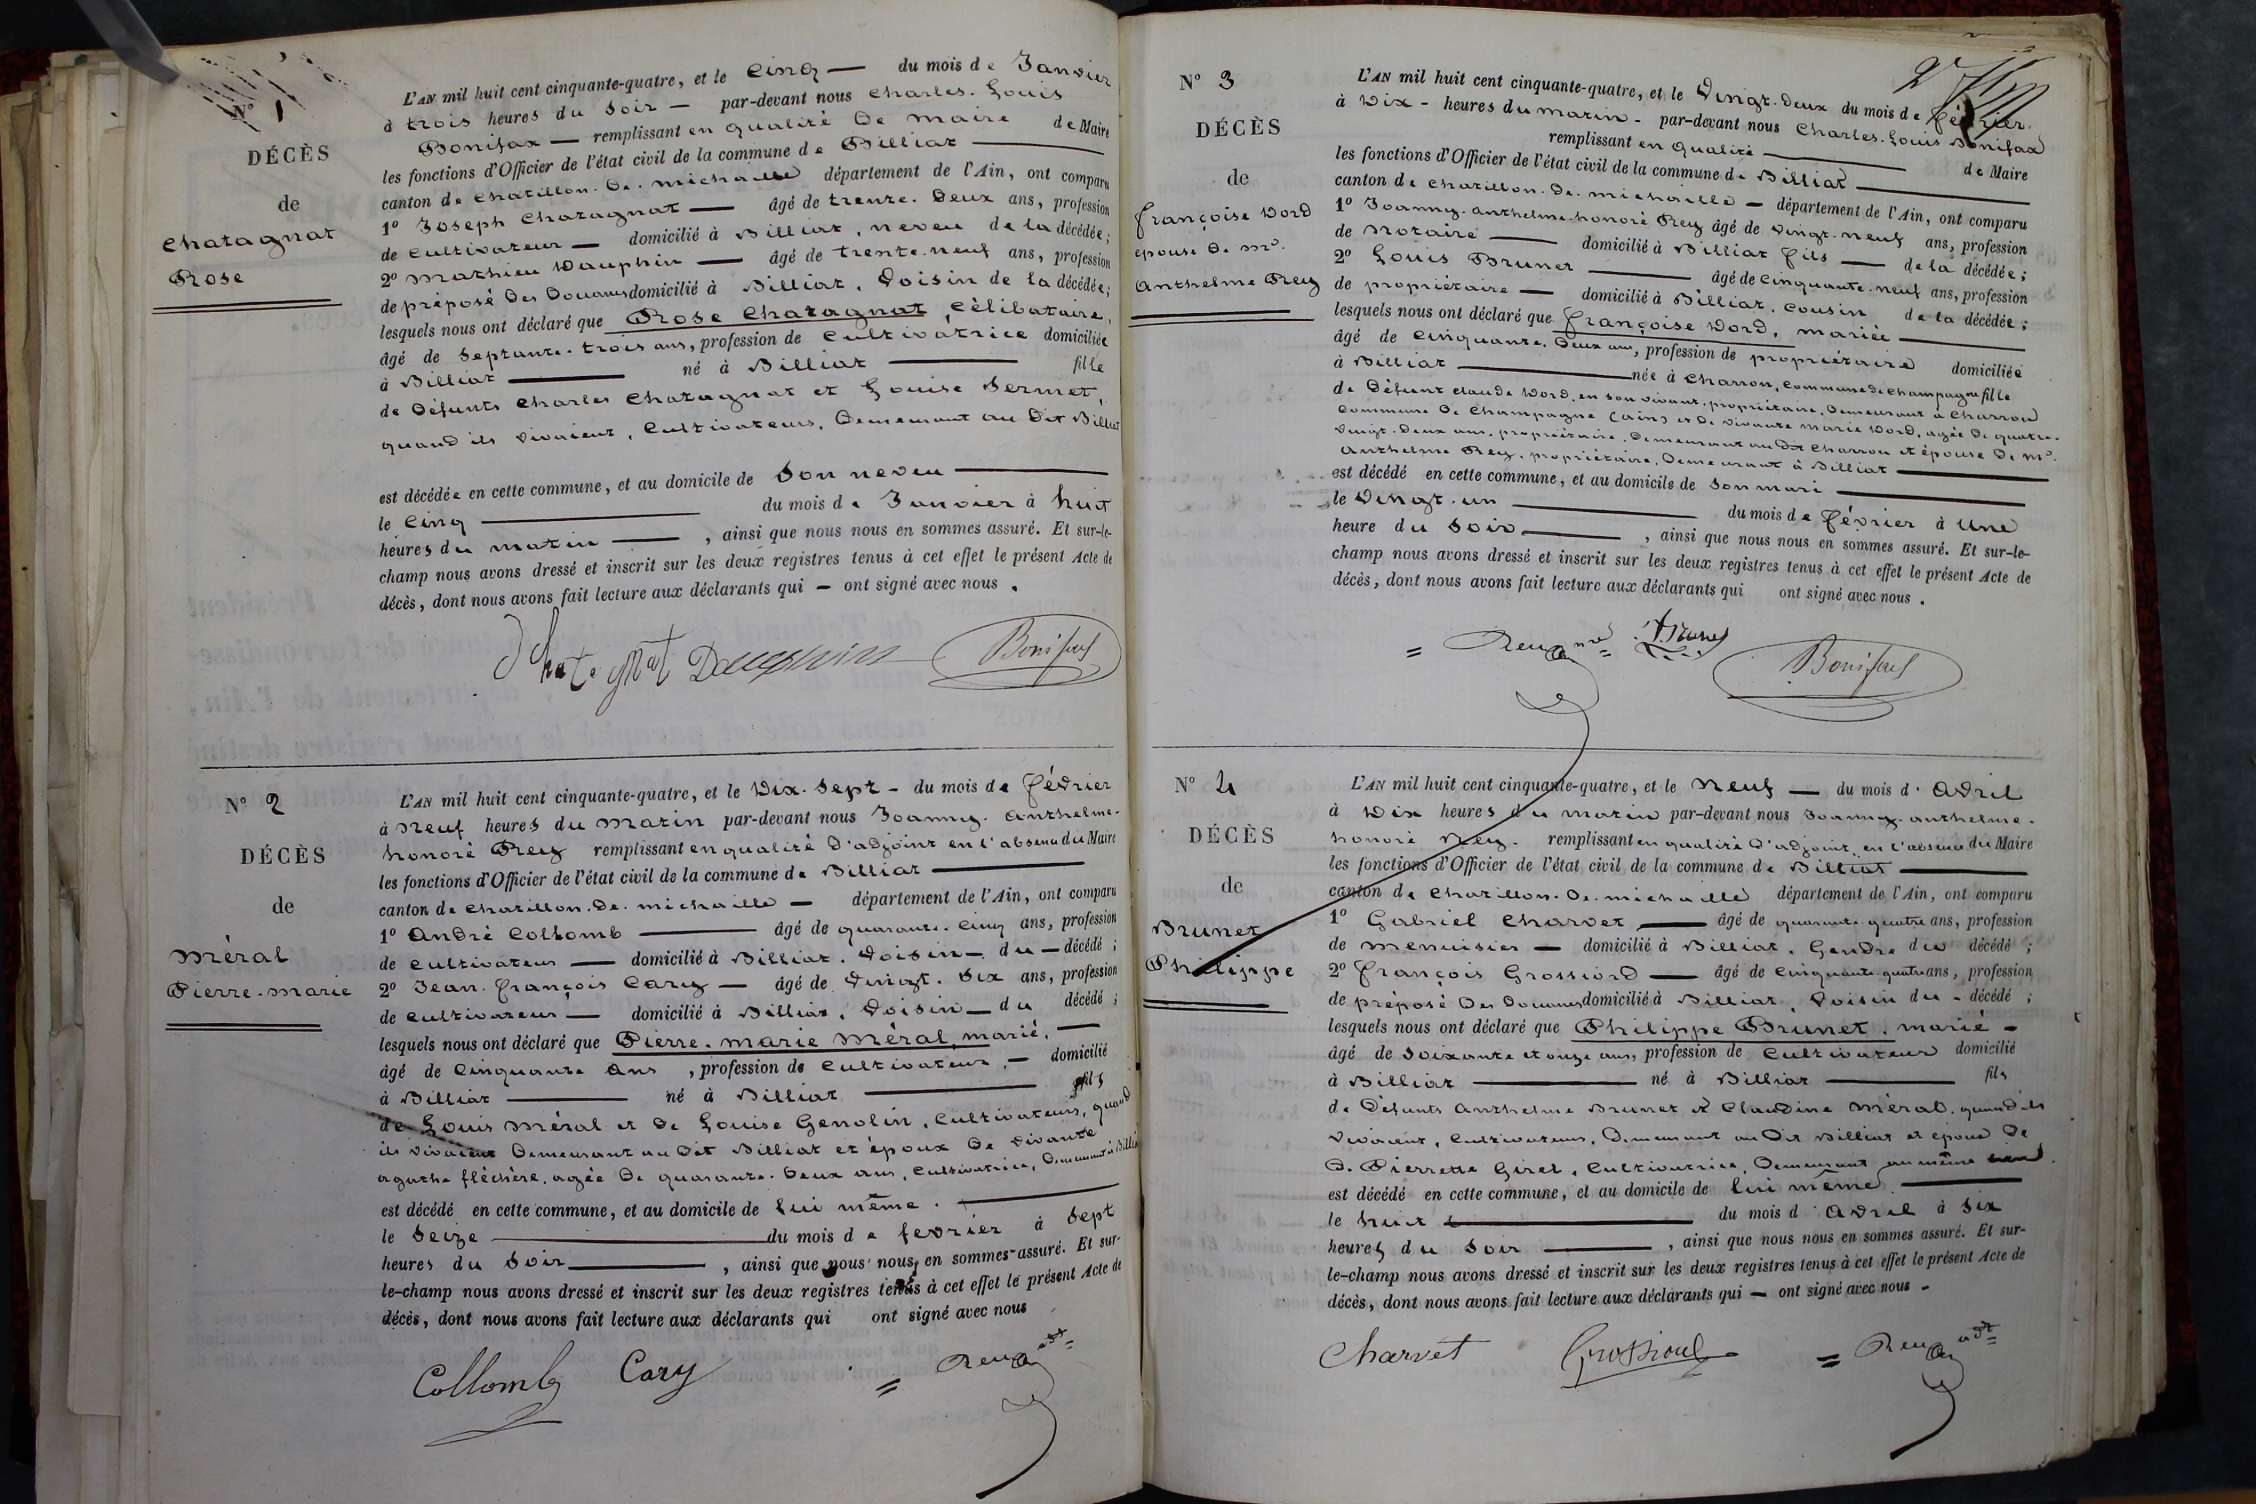 N° 1
DÉCÈS
de
Chatagnat
Rose
L'AN mil huit cent cinquante-quatre, et le Cinq — du mois de Janvier
à trois heures du Soir — par-devant nous Charles. Louis
Bonifax — remplissant en qualité De Maire de Maire
les fonctions d'Officier de l'état civil de la commune de Billiat —
canton de Chatillon. De. Michaille département de l'Ain, ont comparu
1° Joseph Chatagnat — âgé de trente. Deux ans, profession
de Cultivateur — domicilié à Billiat, neveu de la décédée;
2° Mathieu Dauphin — âgé de trente. neuf ans, profession
de préposé Des Douanes domicilié à Billiat, Voisin de la décédée;
lesquels nous ont déclaré que Rose Chatagnat, Célibataire,
âgé de Septante. trois ans, profession de Cultivatrice domiciliée
à Billiat — né à Billiat — fille
de Défunts Charles Chatagnat et Louise Sermet,
quand ils vivaient, Cultivateurs, Demeurant au Dit Billiat
est décédée en cette commune, et au domicile de Son neveu —
le Cinq — du mois de Janvier à huit
heures du matin — , ainsi que nous nous en sommes assuré. Et sur-le-
champ nous avons dressé et inscrit sur les deux registres tenus à cet effet le présent Acte de
décès, dont nous avons fait lecture aux déclarants qui — ont signé avec nous .
J Chatagnat Dauphin Bonifax
N° 2
DÉCÈS
de
Méral
Pierre. Marie
L'AN mil huit cent cinquante-quatre, et le Dix. Sept - du mois de Février
à Neuf heures du Matin par-devant nous Joanny. Anthelme.
honoré Rey remplissant en qualité D'adjoint en l'absence du Maire
les fonctions d'Officier de l'état civil de la commune de Billiat —
canton de Chatillon. De. Michaille — département de l'Ain, ont comparu
1° André Collomb — âgé de quarante. Cinq ans, profession
de Cultivateur — domicilié à Billiat. Voisin — du — décédé ;
2° Jean. François Cary — âgé de Vingt. Six ans, profession
de Cultivateur — domicilié à Billiat, Voisin — du décédé ;
lesquels nous ont déclaré que Pierre. Marie Méral, marié, —
âgé de Cinquante Ans , profession de Cultivateur, — domicilié
à Billiat — né à Billiat — fils
de Louis Méral et De Louise Genolin, Cultivateurs, quand
ils vivaient Demeurant au Dit Billiat et époux De vivante
agathe fléchère, agée De quarante. Deux ans, Cultivatrice, Demeurant à Billiat
est décédé en cette commune, et au domicile de lui même . —
le Seize — du mois de fevrier à Sept
heures du Soir — , ainsi que nous nous en sommes assuré. Et sur-
le-champ nous avons dressé et inscrit sur les deux registres tenus à cet effet le présent Acte de
décès, dont nous avons fait lecture aux déclarants qui ont signé avec nous
Collomb Cary = Rey adjt =
N° 3
DÉCÈS
de
Françoise Dord
épouse De Mr.
Anthelme Rey
L'AN mil huit cent cinquante-quatre, et le Vingt. Deux du mois de Février
à Dix - heures du matin - par-devant nous Charles. Louis Bonifax
remplissant en qualité — de Maire
les fonctions d'Officier de l'état civil de la commune de Billiat —
canton de Chatillon. De. Michaille — département de l'Ain, ont comparu
1° Joanny. anthelme. honoré Rey âgé de Vingt. neuf ans, profession
de Notaire — domicilié à Billiat fils — de la décédée ;
2° Louis Brunet — âgé de Cinquante. neuf ans, profession
de propriétaire — domicilié à Billiat, Cousin de la décédée ;
lesquels nous ont déclaré que Françoise Dord, mariée —
âgé de Cinquante. Deux ans, profession de propriétaire domiciliée
à Billiat — née à Charron, Commune de Champagne fille
de Défunt Claude Dord, en son vivant, propriétaire, Demeurant à Charron
Commune De Champagne (ain) et De Vivante Marie Dord, agée De quatre.
Vingt. Deux ans, propriétaire, Demeurant au Dit Charron et épouse De Mr.
Anthelme Rey. propriétaire, Demeurant à Billiat —
est décédé en cette commune, et au domicile de Son mari —
le Vingt. un — du mois de Février à Une
heure du Soir — , ainsi que nous nous en sommes assuré. Et sur-le-
champ nous avons dressé et inscrit sur les deux registres tenus à cet effet le présent Acte de
décès, dont nous avons fait lecture aux déclarants qui ont signé avec nous .
= Rey nre = Brunet Bonifax
N° 4
DÉCÈS
de
Brunet
Philippe
L'AN mil huit cent cinquante-quatre, et le Neuf — du mois d' Avril
à Dix heures du matin par-devant nous Joanny. anthelme.
honoré Rey. remplissant en qualité D'adjoint, en l'absence du Maire
les fonctions d'Officier de l'état civil de la commune de Billiat —
canton de Chatillon. De. Michaille département de l'Ain, ont comparu
1° Gabriel Charvet — âgé de quarante quatre ans, profession
de menuisier — domicilié à Billiat, Gendre du décédé ;
2° François Grossiord — âgé de Cinquante. quatre ans, profession
de préposé Des Douanes domicilié à Billiat, Voisin du - décédé ;
lesquels nous ont déclaré que Philippe Brunet, marié -
âgé de Soixante et onze ans, profession de Cultivateur domicilié
à Billiat — né à Billiat — fils
de Défunts Anthelme Brunet et Claudine Méral, quand ils
vivaient, Cultivateurs, Demeurant au Dit Billiat et époux De
D. Pierrette Girel, Cultivatrice, Demeurant au même
est décédé en cette commune, et au domicile de lui même —
le huit — du mois d' Avril à Six
heures du Soir — , ainsi que nous nous en sommes assuré. Et sur-
le-champ nous avons dressé et inscrit sur les deux registres tenus à cet effet le présent Acte de
décès, dont nous avons fait lecture aux déclarants qui — ont signé avec nous -
Charvet Grossiord = Rey adjt =